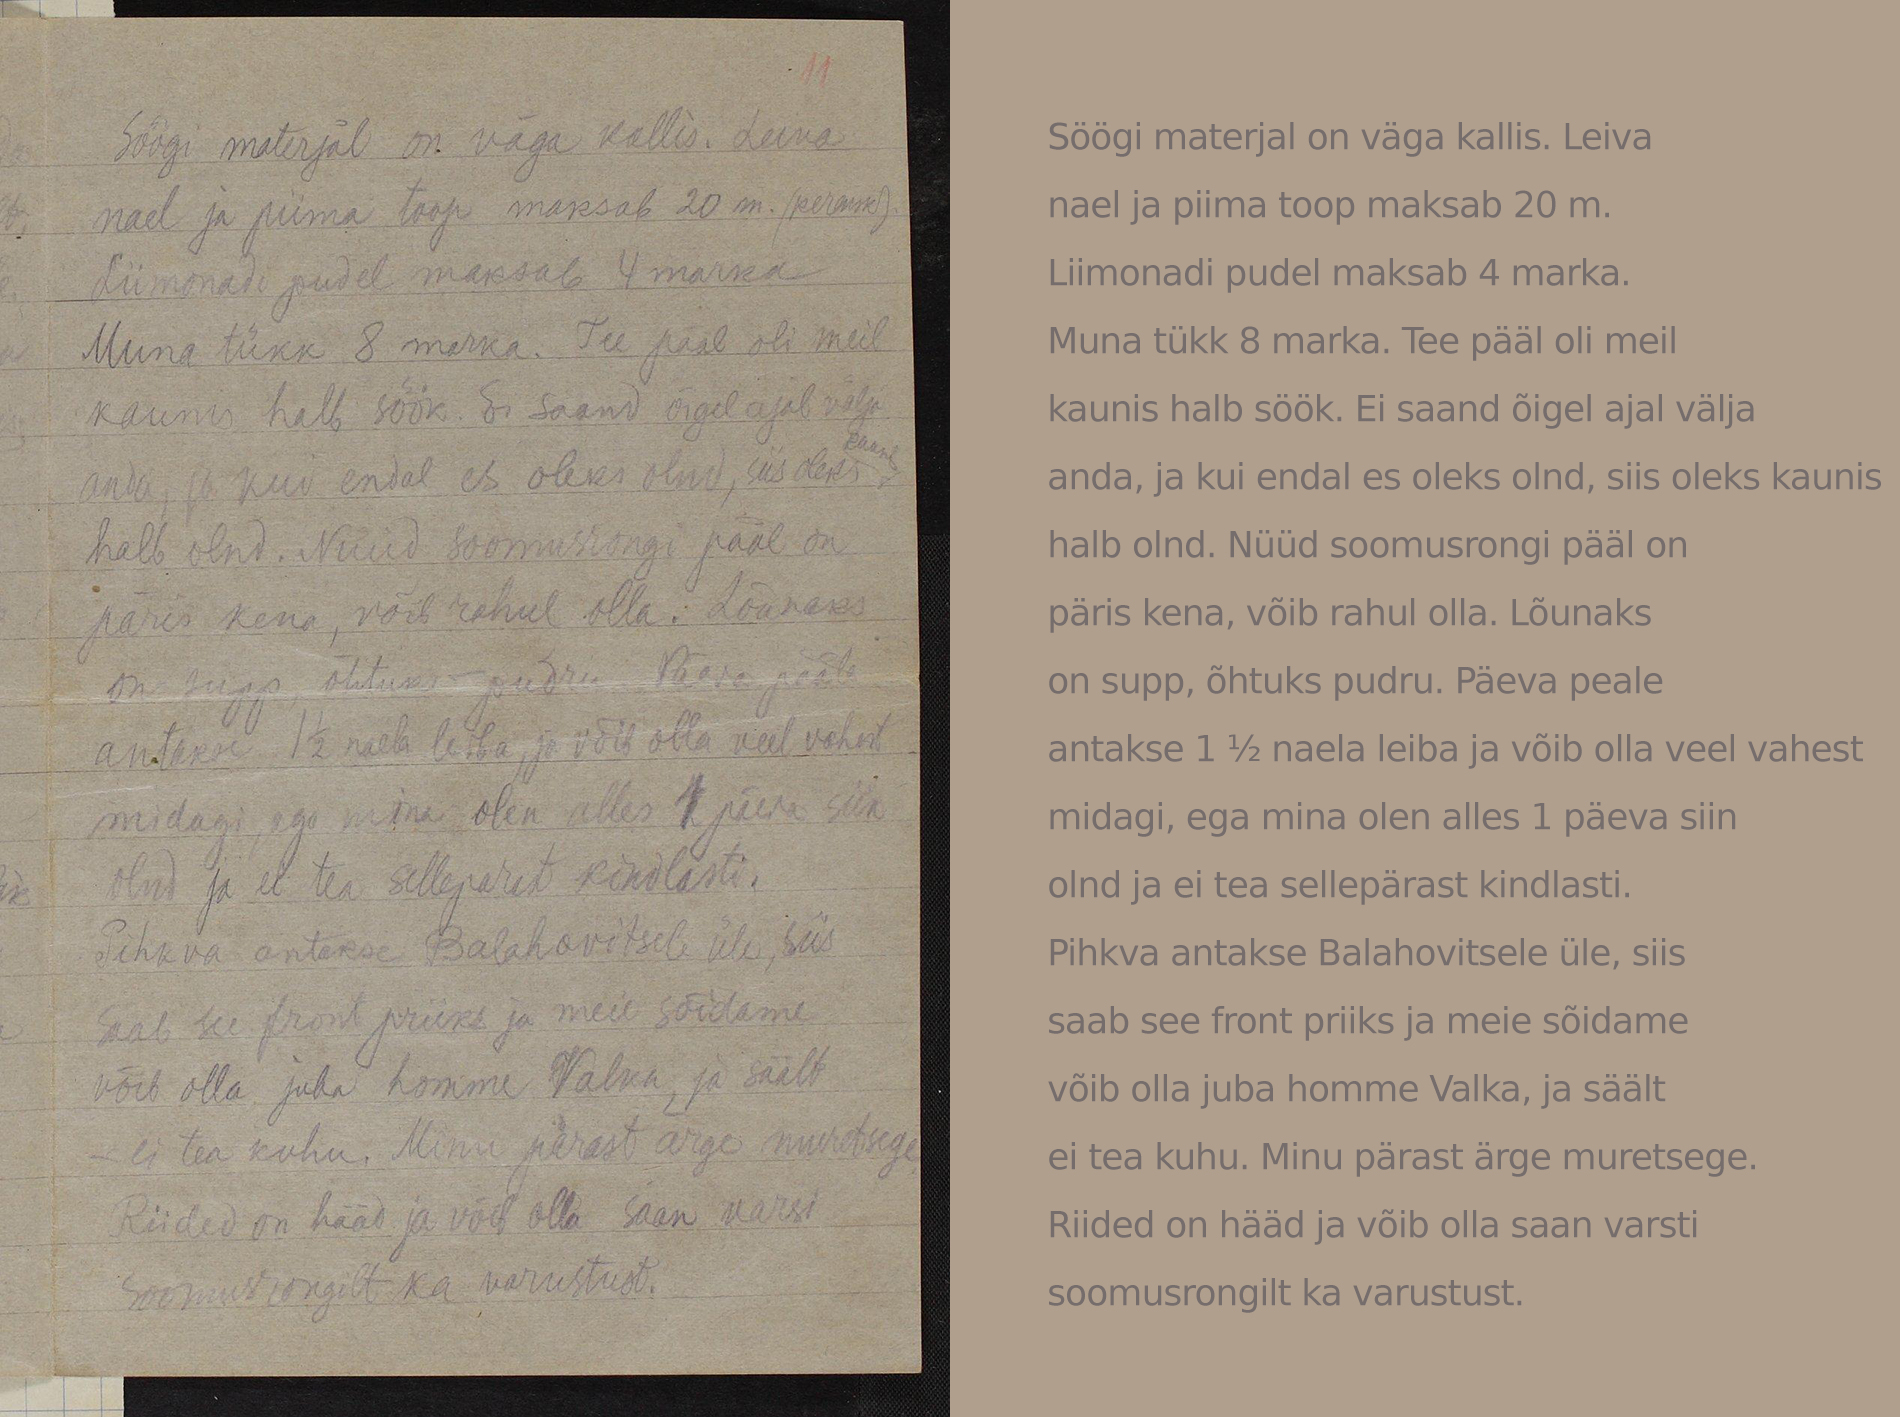 11
Söögi materjal on väga kallis. Leiva
nael ja piima toop maksab 20 m. (kerenski).
Liimonadi pudel maksab 4 marka
Muna tükk 8 marka. Tee pääl oli meil
kaunis halb söök. Ei saand õigel ajal välja
anda, ja kui endal es oleks olnd, siis oleks kaunis
halb olnd. Nüüd soomusrongi pääl on
päris kena, võib rahul olla. Lõunaks
on supp, õhtuks – pudru. Päeva pääle
antakse 1½ naela leiba, ja võib olla veel vahest
midagi, ega mina olen alles 1 päeva siin
olnd ja ei tea sellepärast kindlasti.
Pihkva antakse Balahovitsele üle, siis
saab see front priiks ja meie sõidame
võib olla juba homme Valka, ja säält
– ei tea kuhu. Minu pärast ärge muretsege
Riided on hääd ja võib olla saan varsi
soomusrongilt ka varustust.
Söögi materjal on väga kallis. Leiva
nael ja piima toop maksab 20 m.
Liimonadi pudel maksab 4 marka.
Muna tükk 8 marka. Tee pääl oli meil
kaunis halb söök. Ei saand õigel ajal välja
anda, ja kui endal es oleks olnd, siis oleks kaunis
halb olnd. Nüüd soomusrongi pääl on
päris kena, võib rahul olla. Lõunaks
on supp, õhtuks pudru. Päeva peale
antakse 1 ½ naela leiba ja võib olla veel vahest
midagi, ega mina olen alles 1 päeva siin
olnd ja ei tea sellepärast kindlasti.
Pihkva antakse Balahovitsele üle, siis
saab see front priiks ja meie sõidame
võib olla juba homme Valka, ja säält
ei tea kuhu. Minu pärast ärge muretsege.
Riided on hääd ja võib olla saan varsti
soomusrongilt ka varustust.